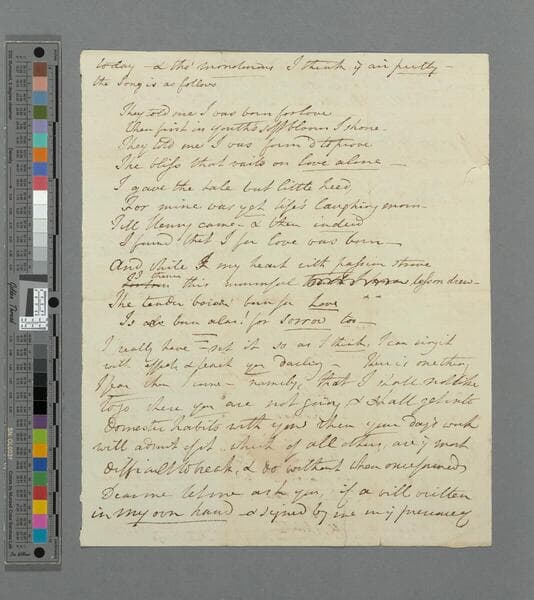 today - & tho' monotonous I think ye air pretty -
the Song is as follows
They told me I was born for love
When first in youth's soft bloom I shone -
They told me I was form'd to prove
The bliss that waits on love alone -
I gave the tale but little heed
For mine was yet life's laughing morn -
Till Henry came - & then indeed
I found that I for love was born -
And while I my heart with passion strove
I'd this mournful lesson drew -
The tender born for Love
Is born alas! for sorrow too -
I really have - set it so as I think, I can sing it
with effect, & teach you darling - There is one thing
I fear when I come - namely, that I shall not like
to go where you are not going, & shall get into
Domestic habits with you when your day's work
will admit of it which of all others, are ye most
difficult to break, & do without when once formed
Dear me let me ask you, if a will written
in my own hand - & signed by me in ye presence of